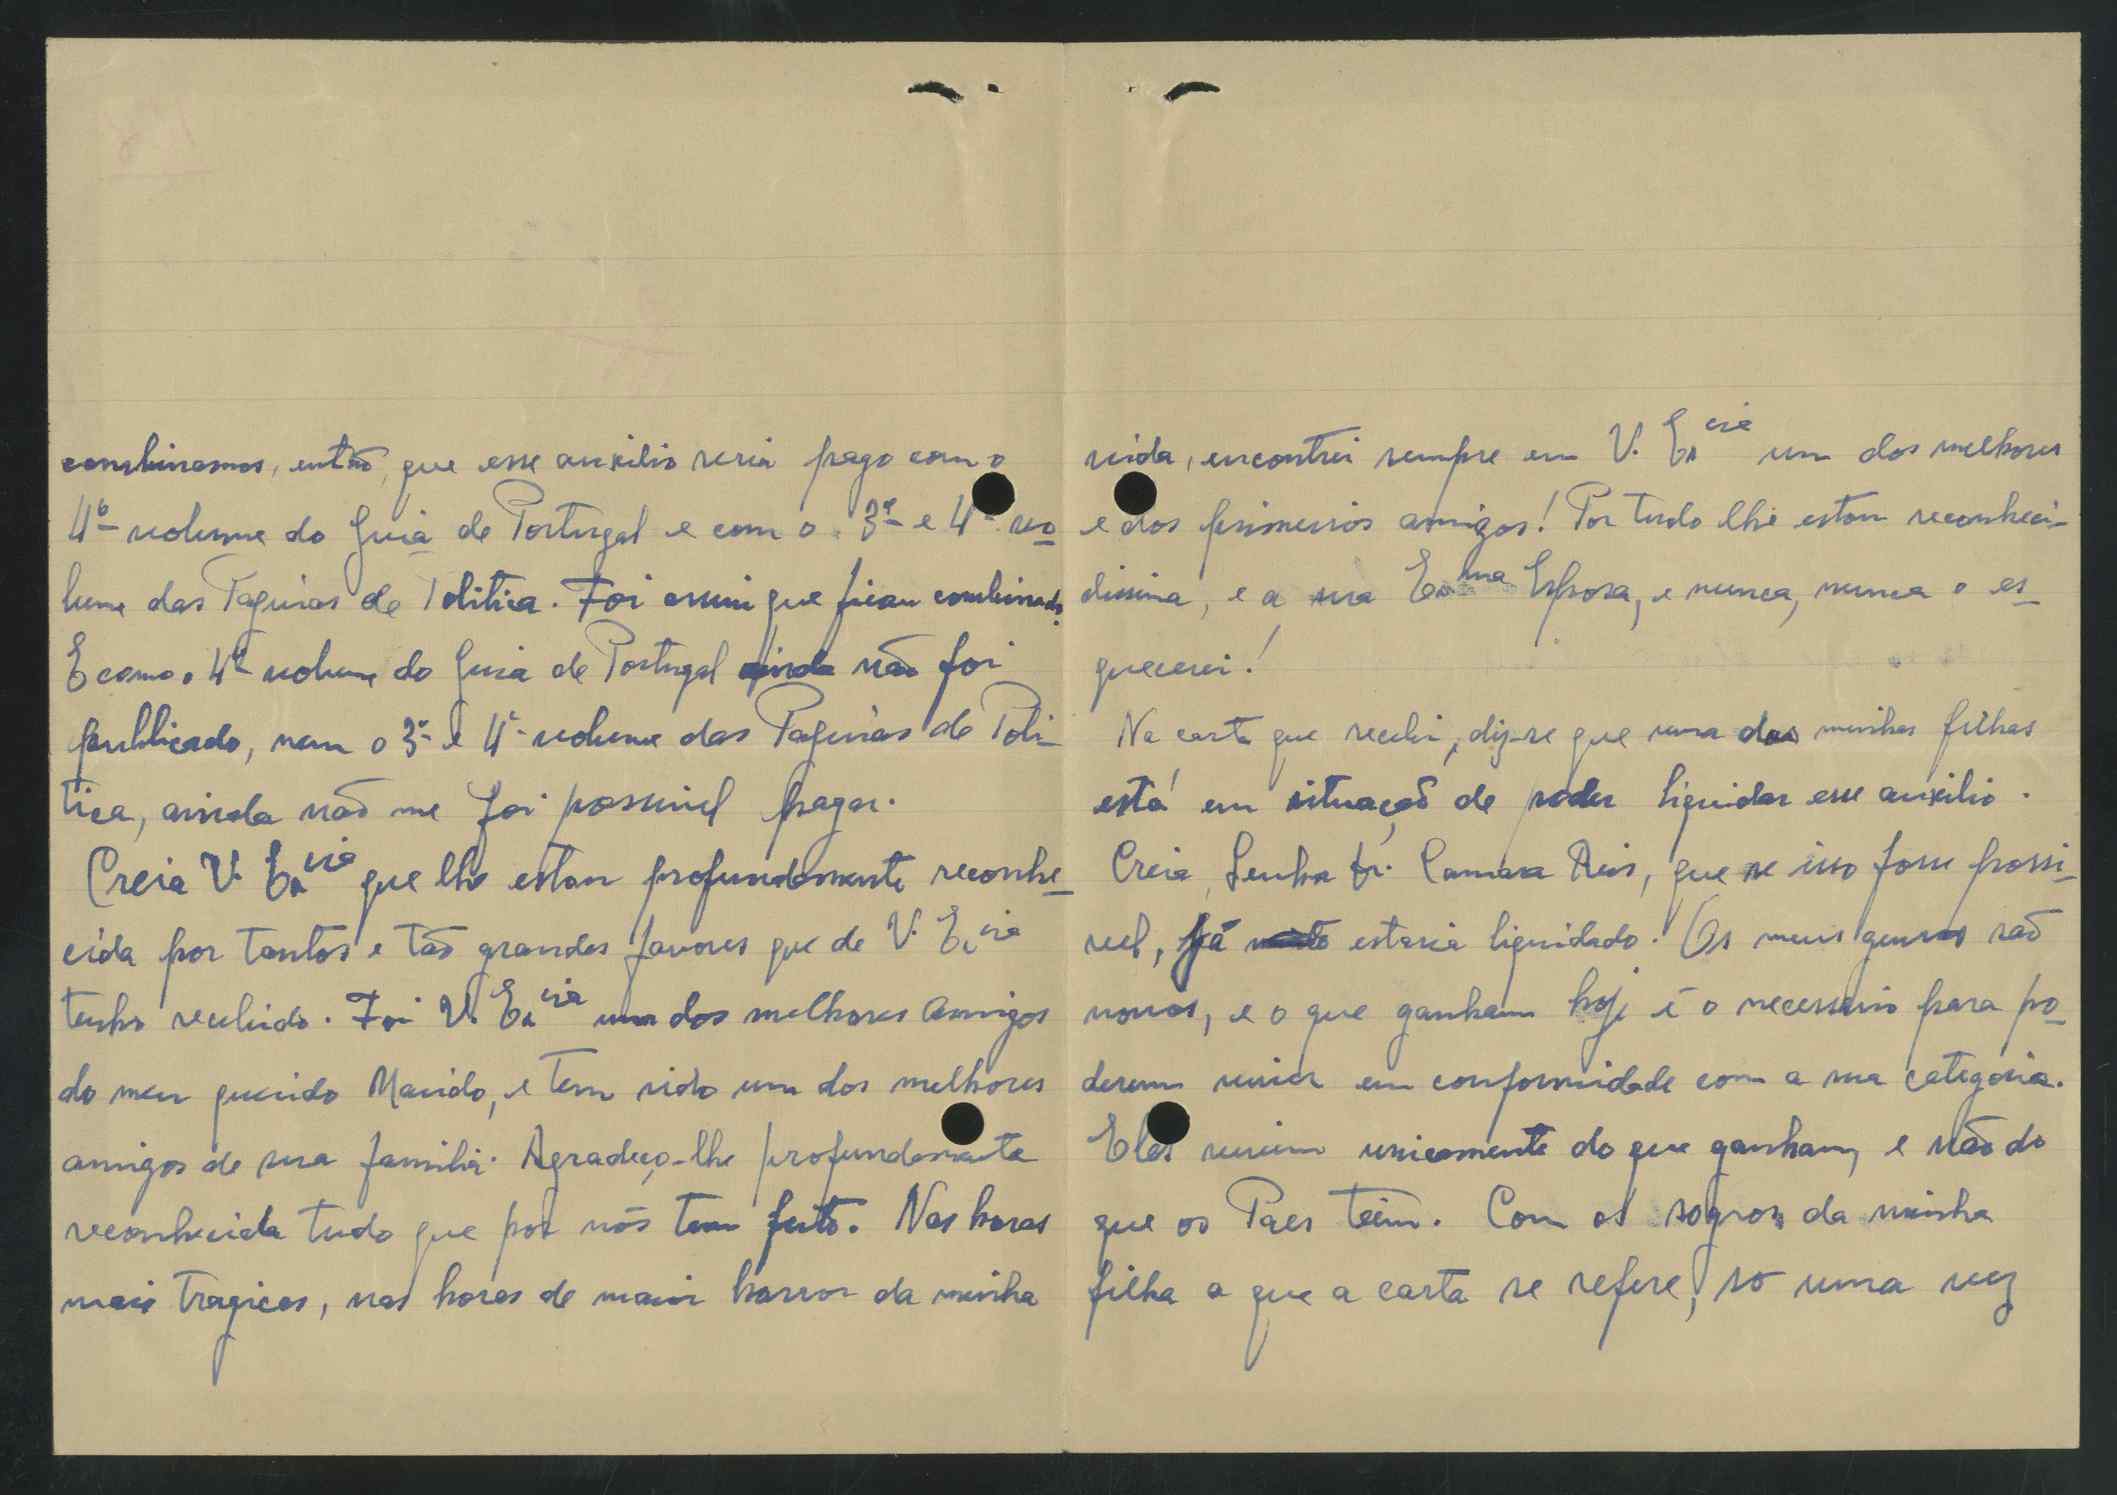 combinamos, então, que esse auxilio seria pago com o
4º volume do Guia de Portugal e com o 3º e 4º vo-
lume das Paginas de Politica. Foi assim que ficou combinado.
E como o 4º volume do Guia de Portugal ainda não foi
publicado, nem o 3º e 4º volume das Paginas de Poli-
tica, ainda não me foi possivel pagar.
Creia V. Ex.cia que lhe estou profundamente reconhe-
cida por tantos e tão grandes favores que de V. Ex.cia
tenho recebido. Foi V. Ex.cia um dos melhores amigos
do meu querido Marido, e tem sido um dos melhores
amigos de sua familia. Agradeço-lhe profundamente
reconhecida tudo que por nós tem feito. Nas horas
mais tragicas, nas horas de maior horror da minha
vida, encontrei sempre em V. Ex.cia um dos melhores
e dos primeiros amigos! Por tudo lhe estou reconheci-
dissima, e a sua Ex.ma Esposa, e nunca, nunca o es-
quecerei!
Na carta que recebi, diz-se que uma das minhas filhas
está em situação de poder liquidar esse auxilio.
Creia, Senhor Dr. Camara Reis, que se isso fosse possi-
vel, já estaria liquidado. Os meus genros são
novos, e o que ganham hoje é o necessario para po-
derem viver em conformidade com a sua categoria.
Eles vivem unicamente do que ganham, e não do
que os Paes teem. Com os sogros da minha
filha a que a carta se refere, só uma vez